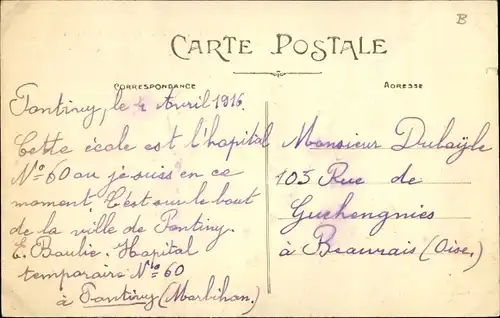 B
CARTE POSTALE
CORRESPONDANCE
ADRESSE
Pontivy, le 4 Avril 1916.
Cette école est l'hopital
No 60 au je suis en ce
moment. C'est sur le bout
de la ville de Pontivy.
E. Baulie. Hopital
temporaire No 60
à Pontivy (Morbihan.)
Monsieur Dubayle
103 Rue de
Guehengnies
à Beauvais (Oise.)